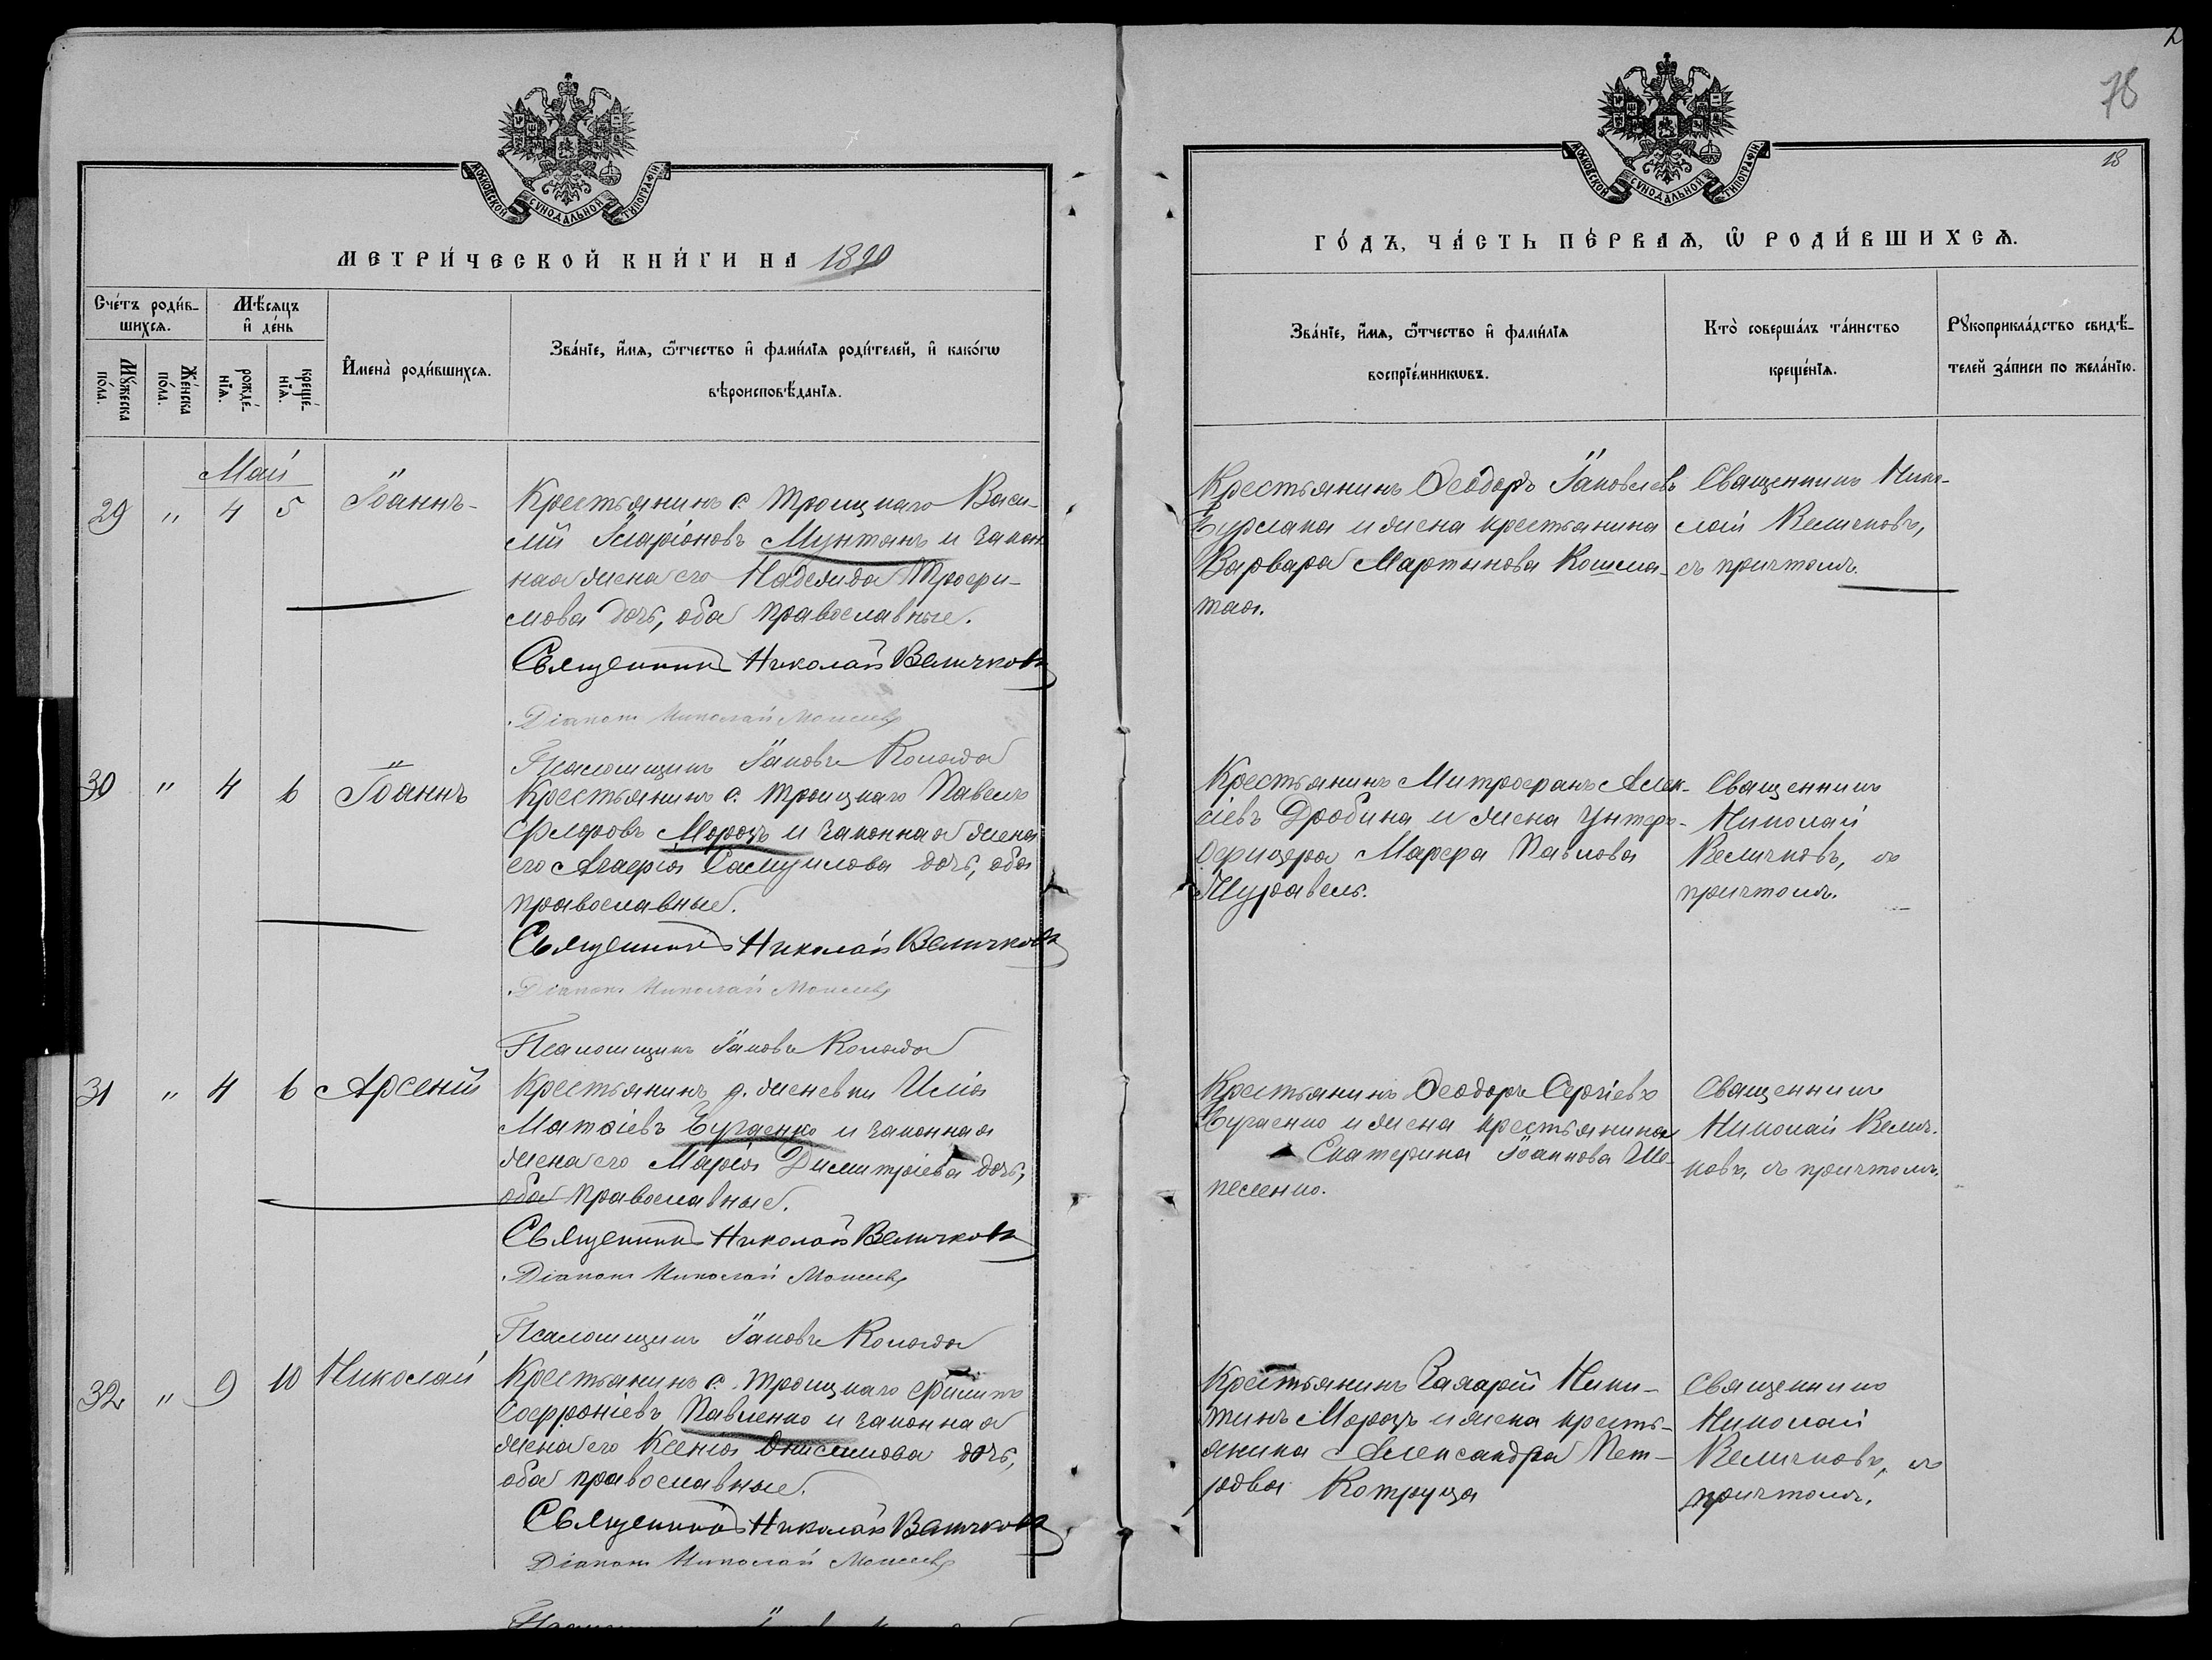 78
18
МОСКОВСКОЙ СѴНОДАЛЬНОЙ ТИПОГРАФІИ
МЕТРИ́ЧЕСКОЙ КНИ́ГИ НА 1890
Сче́тъ роди́в-
шихсѧ.
Мꙋ́жеска
по́ла.
Же́нска
по́ла.
Мѣ́сѧцъ
и҆ де́нь
рожде́-
нїѧ.
креще́-
нїѧ.
И҆мена̀ роди́вшихсѧ.
Зва́нїе, и҆́мѧ, ѻ҆́тчество и҆ фами́лїѧ роди́телей, и҆ како́гѡ
вѣроисповѣ́данїѧ.
Май
29 " 4 5 Іоаннъ
Крестьянинъ с. Троицкаго Васи-
лій Иларіоновъ Мунтянъ и закон
ная жена его Надежда Трофи-
мова дочь, оба православные.
Священникъ Николай Величковъ
Діаконъ Николай Моисеевъ
Псаломщикъ Іаковъ Колода
30 " 4 6 Іоаннъ
Крестьянинъ с. Троицкаго Павелъ
Флоровъ Морозъ и законная жена
его Агафія Самуилова дочь, оба
православные.
Священникъ Николай Величковъ
Діаконъ Николай Моисеевъ
Псаломщикъ Іаковъ Колода
31 " 4 6 Арсеній
Крестьянинъ Илія
Матѳіевъ и законная
жена его Марія Димитріева дочь,
оба православные.
Священникъ Николай Величковъ
Діаконъ Николай Моисеевъ
Псаломщикъ Іаковъ Колода
32 " 9 10 Николай
Крестьянинъ с. Троицкаго Филиппъ
Софроніевъ Павленко и законная
жена его Ксенія Онисимова дочь,
оба православные.
Священникъ Николай Величковъ
Діаконъ Николай Моисеевъ
МОСКОВСКОЙ СѴНОДАЛЬНОЙ ТИПОГРАФІИ
ГО́ДЪ, ЧА́СТЬ ПЕ́РВАѦ, Ѽ РОДИ́ВШИХСѦ.
Зва́нїе, и҆́мѧ, ѻ҆́тчество и҆ фами́лїѧ
воспрїе́мникѡвъ.
Кто̀ соверша́лъ та́инство
креще́нїѧ.
Рꙋкоприкла́дство свидѣ́-
телей за́писи по жела́нїю.
Крестьянинъ Ѳеодоръ Іаковлевъ
Бурлака и жена крестьянина
Варвара Мартынова Кошма-
тая.
Священникъ Нико-
лай Величковъ,
съ причтомъ.
Крестьянинъ Митрофанъ Алек-
сіевъ Дробина и жена унтеръ-
офицера Марфа Павлова
Журавель.
Священникъ
Николай
Величковъ, съ
причтомъ.
Крестьянинъ Ѳеодоръ Сергіевъ
и жена крестьянина
Екатерина Іоаннова Ше-
песенко.
Священникъ
Николай Велич-
ковъ, съ причтомъ.
Крестьянинъ Захарій Ники-
тинъ Морозъ и жена кресть-
янина Александра Пет-
рова Котруца
Священникъ
Николай
Величковъ, съ
причтомъ.